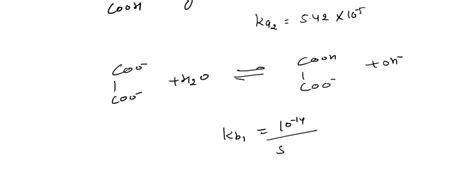 COOH
Ka₂ = 5.42 × 10⁻⁵
COO⁻ COOH
| + H₂O ⇌ | + OH⁻
COO⁻ COO⁻
Kb₁ = 10⁻¹⁴
5